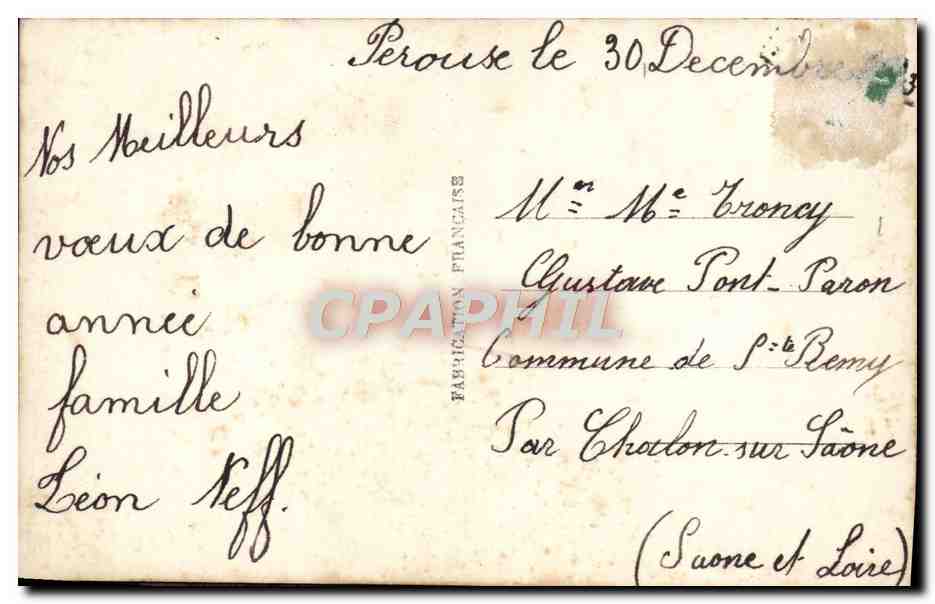 Perouse le 30 Decembre
Nos Meilleurs
vœux de bonne
année
famille
Léon Neff.
FABRICATION FRANÇAISE
Mr Me Troncy
Gustave Pont-Paron
Commune de Ste Remy
Par Chalon-sur Saône
(Saone et Loire)
CPAPHIL